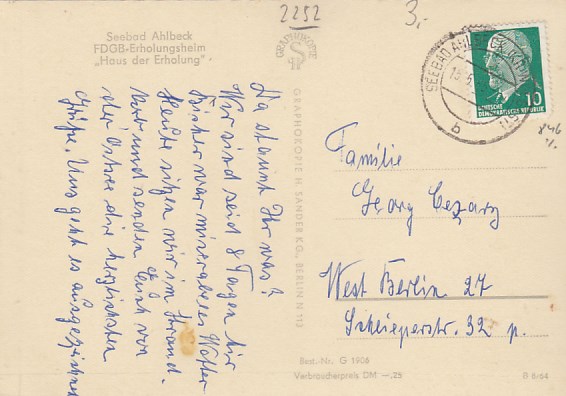 2252
3,-
Seebad Ahlbeck
FDGB-Erholungsheim
„Haus der Erholung"
GRAPHOKOPIE
SEEBAD AHLBECK
10
DEUTSCHE
DEMOKRATISCHE REPUBLIK
Da staunt Ihr was?
Wir sind seid 8 Tagen hir
Bisher war miserables Wetter
Heute sitzen wir im Strand.
korb und senden Euch von
der Ostsee die herzlichsten
Grüße. Uns geht es ausgezeichnet
GRAPHOKOPIE H. SANDER KG., BERLIN N 113
Familie
Georg Cezary
West Berlin 27
32 p.
Best.-Nr. G 1906
Verbraucherpreis DM —,25
B 6/64